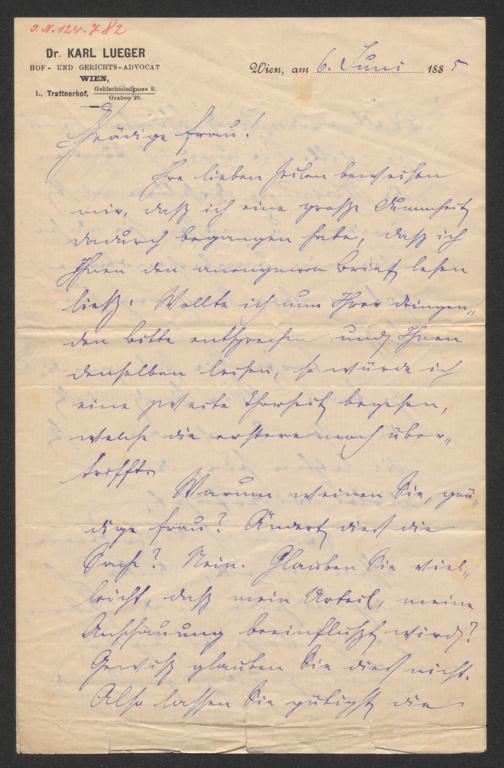 J.N. 124.782
Dr. KARL LUEGER
HOF- UND GERICHTS-ADVOCAT
WIEN,
I., Trattnerhof, Goldschmiedgasse 9.
Graben 29.
Wien, am 6. Juni 1885
Gnädige Frau!
Ihre lieben Zeilen beweisen
mir, daß ich eine große Dummheit
dadurch begangen habe, daß ich
Ihnen den anonymen Brief lesen
ließ. Wollte ich nun Ihrer dringen„
den Bitte entsprechen und Ihnen
denselben leihen, so würde ich
eine zweite Thorheit begehen,
welche die erstere noch über„
trifft.
Warum weinen Sie, gnä„
dige Frau? Ändert dieß die
Sache? Nein. Glauben Sie viel„
leicht, daß mein Urteil, meine
Anschauung beeinflußt wird?
Gewiß glauben Sie dieß nicht.
Also lassen Sie gütigst die